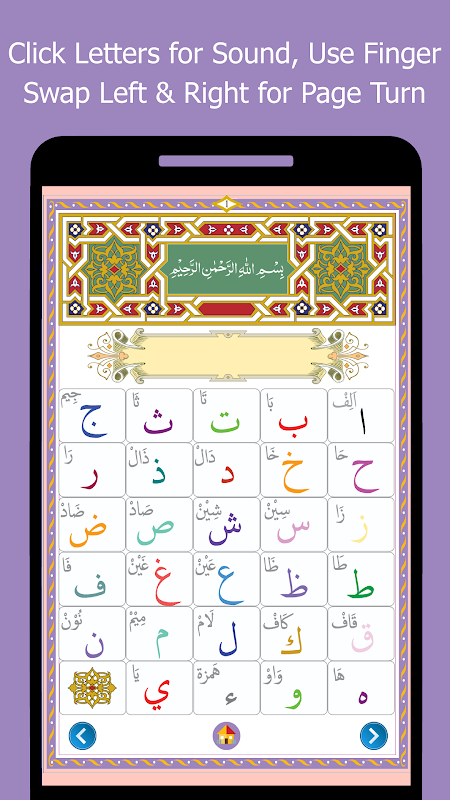 Click Letters for Sound, Use Finger
Swap Left & Right for Page Turn
١
بِسْمِ اللهِ الرَّحْمٰنِ الرَّحِيْمِ
اَلِفْ بَا تَّا ثَا جِيْمْ
ا ب ت ث ج
حَا خَا دَالْ ذَالْ رَا
ح خ د ذ ر
زَا سِيْنْ شِيْنْ صَادْ ضَادْ
ز س ش ص ض
طَا ظَا عَيْنْ غَيْنْ فَا
ط ظ ع غ ف
قَافْ كَافْ لَامْ مِيْمْ نُوْنْ
ق ك ل م ن
هَا وَاوْ هَمزَة يَا
ه و ء ي